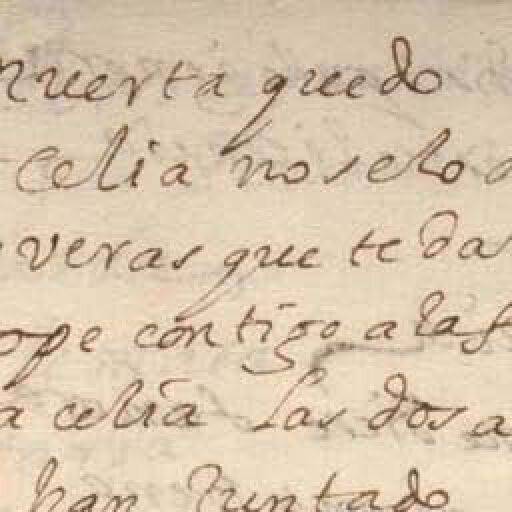 muerta quedo
celia no se lo d
veras que te das
ope contigo a las
a celia las dos a
han Juntado